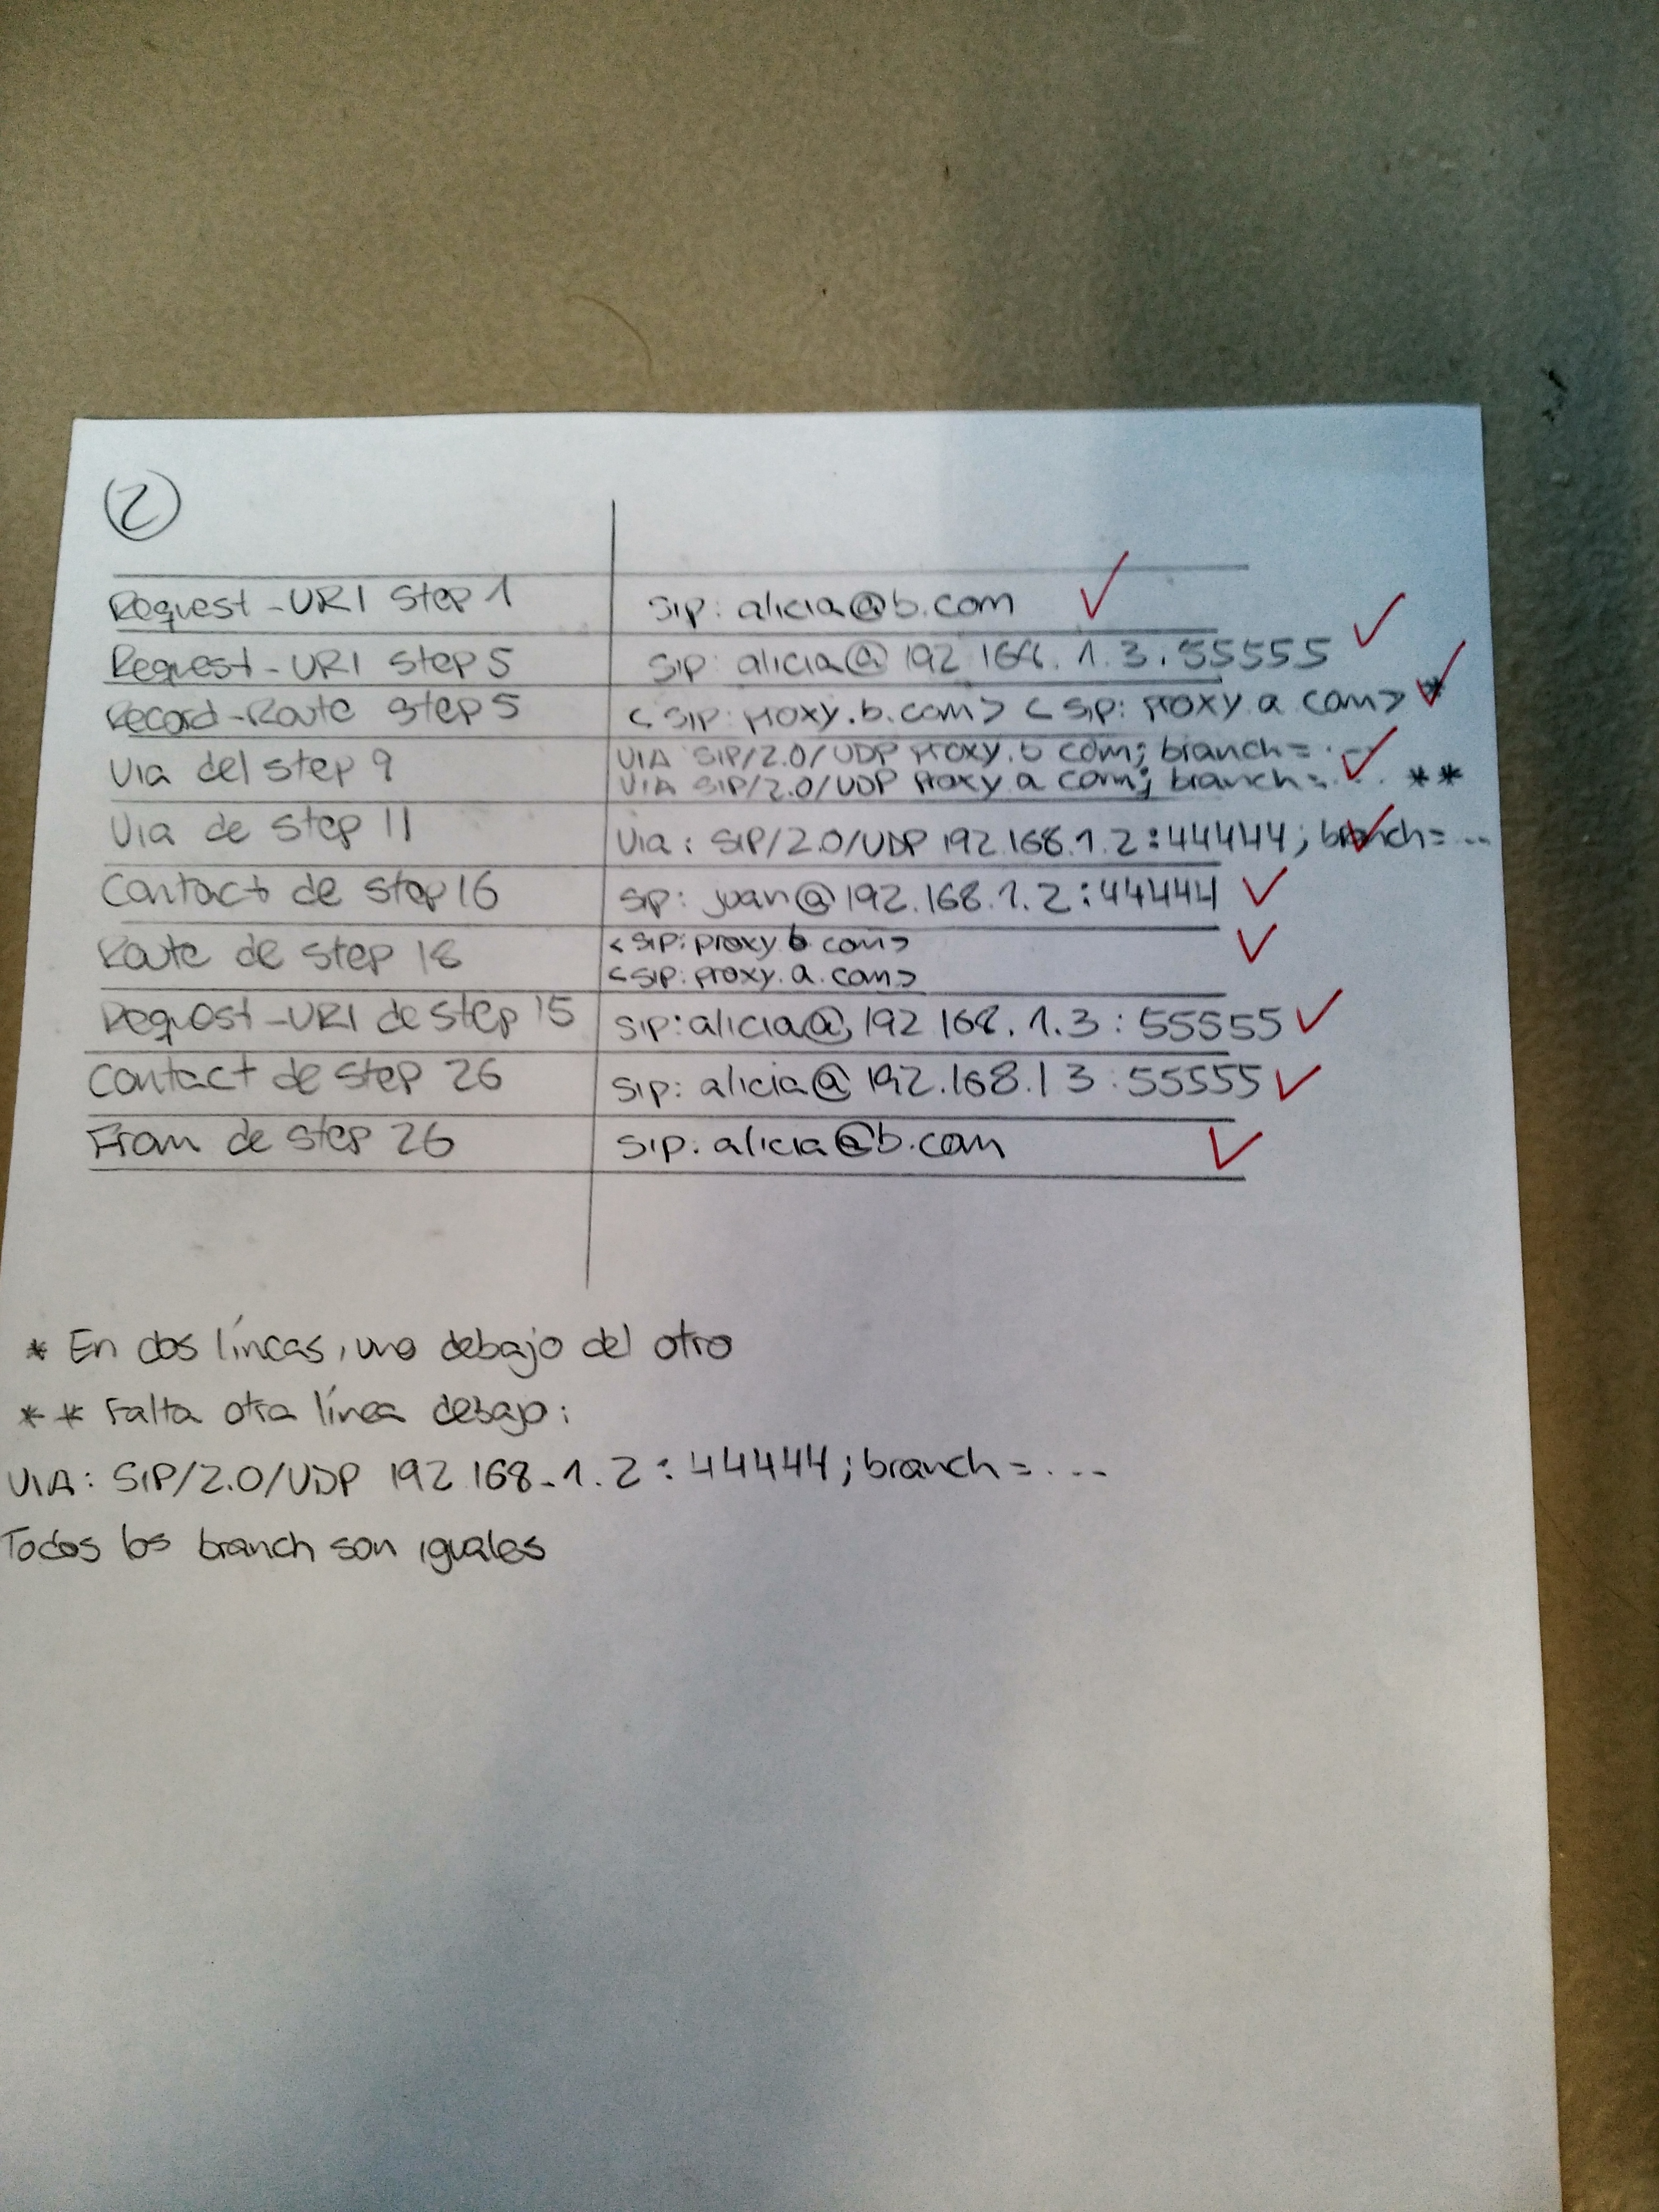 2
Request-URI step 1 sip: alicia@b.com ✓
Request-URI step 5 sip: alicia@192.168.1.3:55555 ✓
Record-Route step 5 <sip:proxy.b.com> <sip:proxy.a.com> * ✓
Via del step 9 VIA SIP/2.0/UDP proxy.b.com; branch=... ✓
VIA SIP/2.0/UDP proxy.a.com; branch=... **
Via de step 11 Via: SIP/2.0/UDP 192.168.1.2:44444; branch=... ✓
Contact de step 16 sip: juan@192.168.1.2:44444 ✓
Route de step 18 <sip:proxy.b.com> ✓
<sip:proxy.a.com>
Request-URI de step 15 sip:alicia@192.168.1.3:55555 ✓
Contact de step 26 sip: alicia@192.168.1.3:55555 ✓
From de step 26 sip: alicia@b.com ✓
* En dos líneas, uno debajo del otro
** Falta otra línea debajo:
VIA: SIP/2.0/UDP 192.168.1.2:44444; branch=...
Todos los branch son iguales